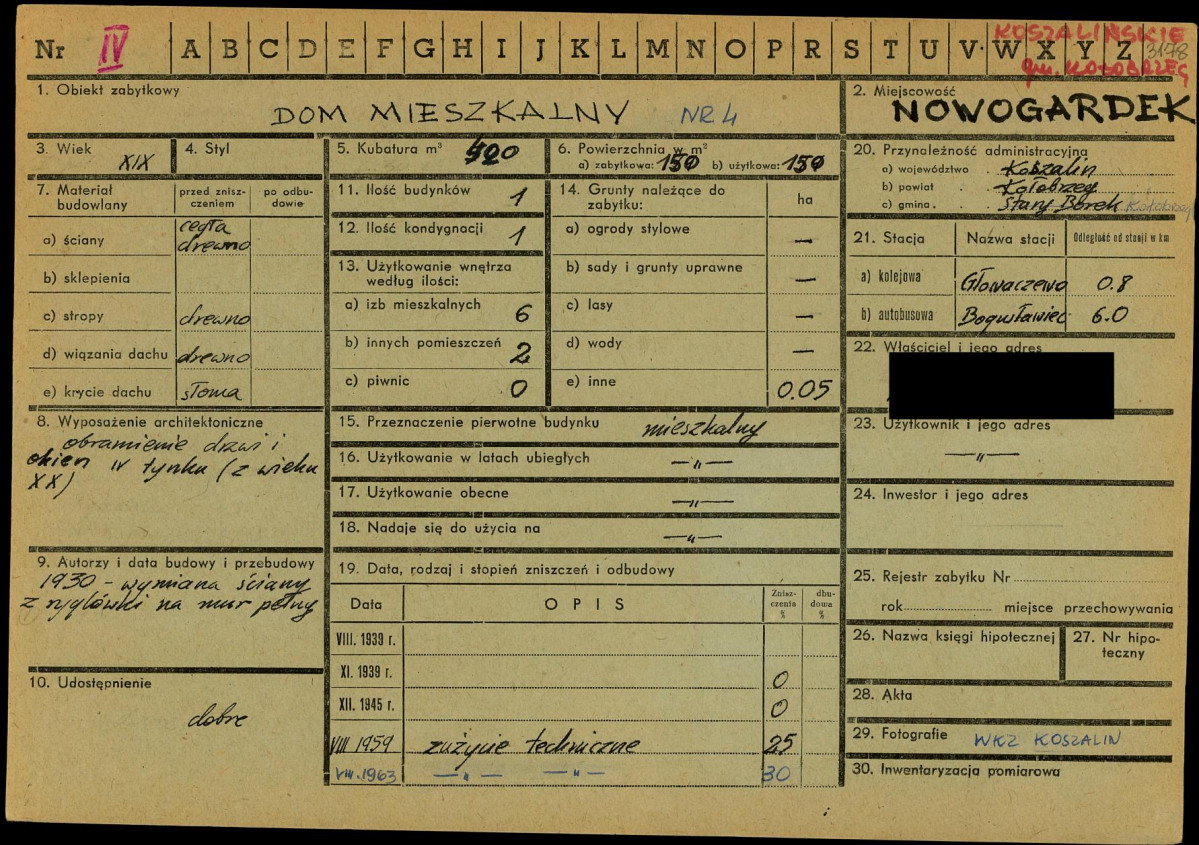 Nr IV A B C D E F G H I J K L M N O P R S T U V W X Y Z
KOSZALIŃSKIE
3178
gm. KOŁOBRZEG
1. Obiekt zabytkowy
DOM MIESZKALNY NR 4
2. Miejscowość
NOWOGARDEK
3. Wiek
XIX
4. Styl
5. Kubatura m³
6. Powierzchnia w m²
a) zabytkowa: 150 b) użytkowa: 150
7. Materiał budowlany
przed zniszczeniem
po odbudowie
a) ściany
cegła
drewno
b) sklepienia
c) stropy drewno
d) wiązania dachu drewno
e) krycie dachu słoma
8. Wyposażenie architektoniczne
obramienie drzwi i
okien w tynku (z wieku
XX)
9. Autorzy i data budowy i przebudowy
1930 - wymiana ściany
z ryglówki na mur pełny
10. Udostępnienie
dobre
11. Ilość budynków 1
12. Ilość kondygnacji 1
13. Użytkowanie wnętrza
według ilości:
a) izb mieszkalnych 6
b) innych pomieszczeń 2
c) piwnic 0
14. Grunty należące do
zabytku:
ha
a) ogrody stylowe —
b) sady i grunty uprawne —
c) lasy —
d) wody —
e) inne 0.05
15. Przeznaczenie pierwotne budynku mieszkalny
16. Użytkowanie w latach ubiegłych —"—
17. Użytkowanie obecne —"—
18. Nadaje się do użycia na —"—
19. Data, rodzaj i stopień zniszczeń i odbudowy
Data OPIS Zniszczenia % dbudowa %
VIII. 1939 r.
XI. 1939 r. 0
XII. 1945 r. 0
VIII 1959 zużycie techniczne 25
VIII. 1963 —"— —"— 30
20. Przynależność administracyjna
a) województwo . Koszalin
b) powiat . Kołobrzeg
c) gmina . . Stary Borek Kołobrzeg
21. Stacja Nazwa stacji Odległość od stacji w km
a) kolejowa Głowaczewo 0.8
b) autobusowa Bogusławiec 6.0
22. Właściciel i jego adres
23. Użytkownik i jego adres
—"—
24. Inwestor i jego adres
25. Rejestr zabytku Nr
rok miejsce przechowywania
26. Nazwa księgi hipotecznej
27. Nr hipoteczny
28. Akta
29. Fotografie WKZ KOSZALIN
30. Inwentaryzacja pomiarowa